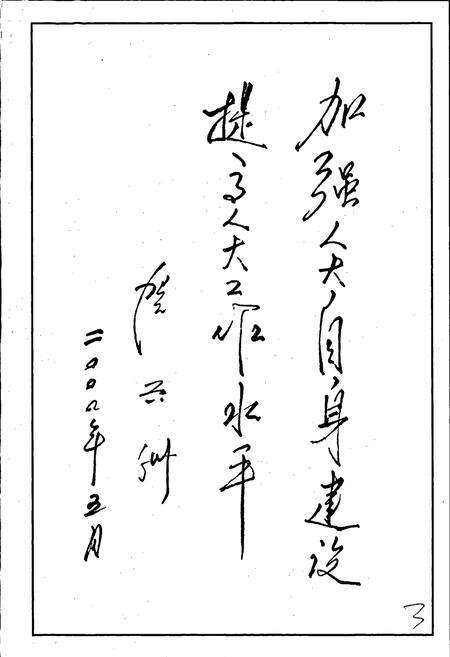 加强人大自身建设
提高人大工作水平
二〇〇〇年五月
3